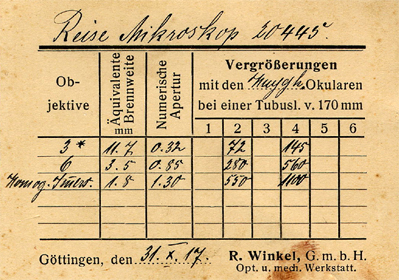 Reise Mikroskop 20445.
Ob-
jektive
Äquivalente
Brennweite
mm
Numerische
Apertur
Vergrößerungen
mit den Huygh. Okularen
bei einer Tubusl. v. 170 mm
1 2 3 4 5 6
3* 11.7 0.32 72 145
6 3.5 0.85 280 560
Homog. Imers. 1.8 1.30 550 1100
Göttingen, den 31. X. 17.
R. Winkel, G. m. b. H.
Opt. u. mech. Werkstatt.